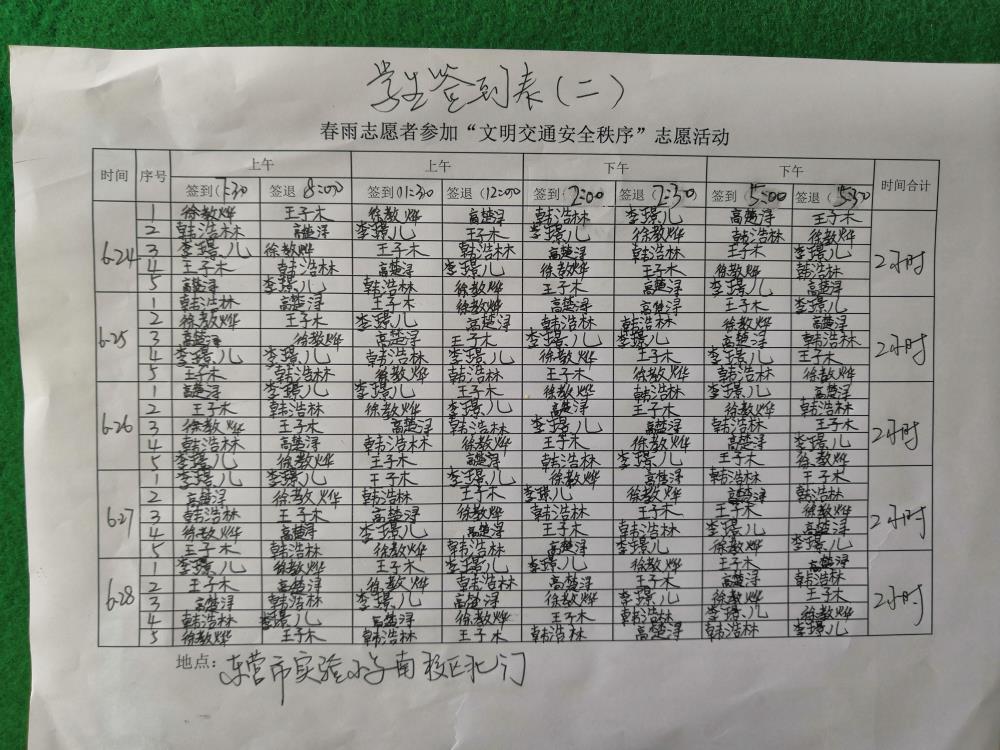 学生签到表(二)
春雨志愿者参加“文明交通安全秩序”志愿活动
时间 序号 上午 上午 下午 下午 时间合计
签到(7:30 签退 8:00) 签到(11:30 签退(12:00) 签到(2:00 签退(2:30) 签到(5:00 签退(5:30)
6.24 2小时
1 徐教烨 王子木 徐教烨 高楚浔 韩浩林 李璟儿 高楚浔 王子木
2 韩浩林 高楚浔 李璟儿 王子木 李璟儿 徐教烨 韩浩林 徐教烨
3 李璟儿 徐教烨 王子木 韩浩林 高楚浔 韩浩林 王子木 李璟儿
4 王子木 韩浩林 高楚浔 李璟儿 徐教烨 王子木 徐教烨 韩浩林
5 高楚浔 李璟儿 韩浩林 徐教烨 王子木 高楚浔 李璟儿 高楚浔
6.25 2小时
1 韩浩林 高楚浔 王子木 徐教烨 高楚浔 高楚浔 王子木 李璟儿
2 徐教烨 王子木 李璟儿 高楚浔 韩浩林 韩浩林 徐教烨 高楚浔
3 高楚浔 徐教烨 高楚浔 王子木 李璟儿 李璟儿 高楚浔 韩浩林
4 李璟儿 李璟儿 韩浩林 李璟儿 徐教烨 王子木 李璟儿 王子木
5 王子木 韩浩林 徐教烨 韩浩林 王子木 徐教烨 韩浩林 徐教烨
6.26 2小时
1 高楚浔 李璟儿 李璟儿 王子木 徐教烨 韩浩林 李璟儿 高楚浔
2 王子木 韩浩林 徐教烨 李璟儿 高楚浔 王子木 徐教烨 韩浩林
3 徐教烨 王子木 高楚浔 韩浩林 李璟儿 高楚浔 韩浩林 王子木
4 韩浩林 高楚浔 韩浩林 徐教烨 王子木 徐教烨 高楚浔 李璟儿
5 李璟儿 徐教烨 王子木 高楚浔 韩浩林 李璟儿 王子木 徐教烨
6.27 2小时
1 李璟儿 李璟儿 李璟儿 徐教烨 高楚浔 韩浩林 王子木
2 高楚浔 徐教烨 韩浩林 王子木 李璟儿 徐教烨 高楚浔 韩浩林
3 韩浩林 王子木 高楚浔 徐教烨 韩浩林 王子木 王子木 徐教烨
4 徐教烨 高楚浔 李璟儿 高楚浔 王子木 韩浩林 李璟儿 高楚浔
5 王子木 韩浩林 徐教烨 韩浩林 高楚浔 李璟儿 徐教烨 李璟儿
6.28 2小时
1 李璟儿 徐教烨 王子木 李璟儿 李璟儿 徐教烨 王子木 高楚浔
2 王子木 高楚浔 徐教烨 韩浩林 高楚浔 王子木 高楚浔 韩浩林
3 高楚浔 韩浩林 李璟儿 高楚浔 徐教烨 李璟儿 徐教烨 王子木
4 韩浩林 李璟儿 高楚浔 徐教烨 王子木 韩浩林 李璟儿 徐教烨
5 徐教烨 王子木 韩浩林 王子木 韩浩林 高楚浔 韩浩林 李璟儿
地点: 东营市实验小学南校区北门